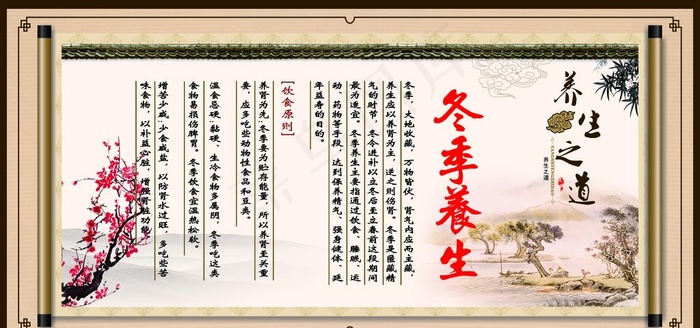 养生之道
养生之道
冬季養生
冬季，大地收藏，万物皆伏，肾气内应而主藏，
养生应以养肾为主，逆之则伤肾。冬季是匿藏精
气的时节，冬令进补以立冬后至立春前这段期间
最为适宜。冬季养生主要指通过饮食、睡眠、运
动、药物等手段，达到保养精气、强身健体、延
年益寿的目的。
[饮食原则]
养肾为先：冬季要为贮存能量，所以养肾至关重
要，应多吃些动物性食品和豆类。
温食忌硬：黏硬、生冷食物多属阴，冬季吃这类
食物易损伤脾胃。冬季饮食宜温热松软。
增苦少咸：少食咸盐，以防肾水过旺，多吃些苦
味食物，以补益心脏，增强肾脏功能，